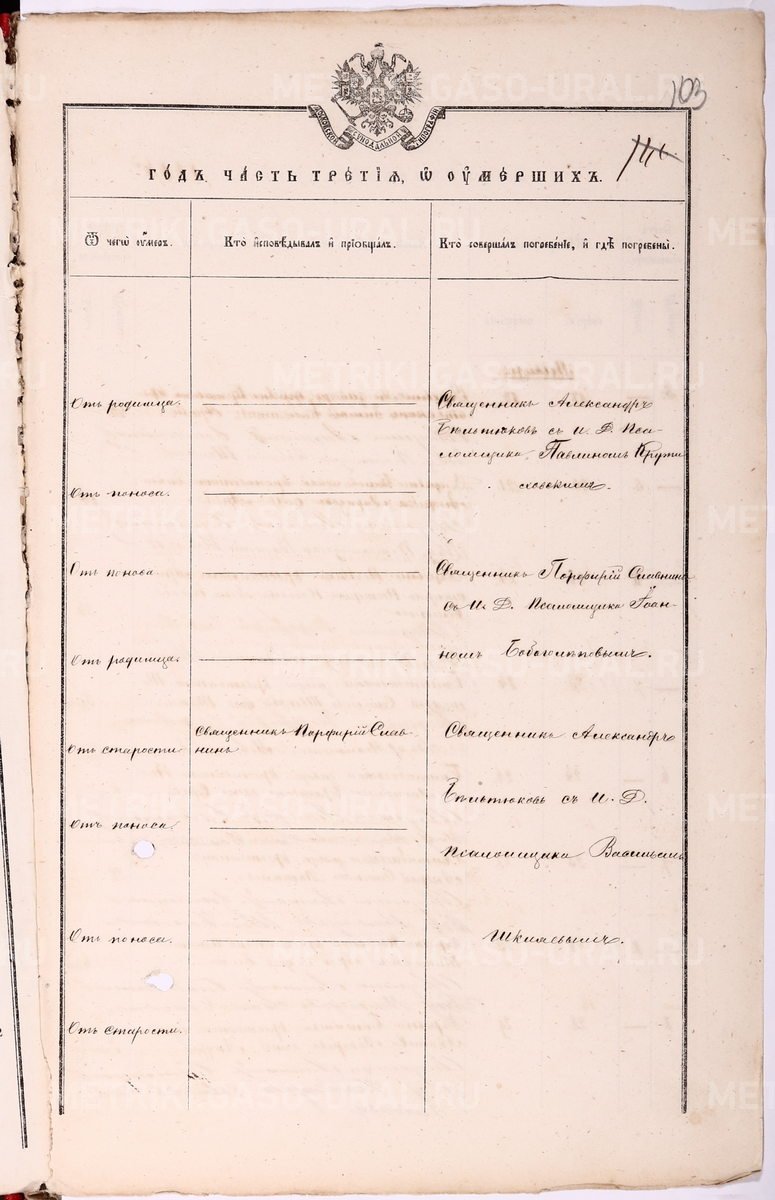 103
МОСКОВСКОЙ СѴНОДАЛЬНОЙ ТИПОГРАФІИ
ГО́ДЪ ЧА́СТЬ ТРЕ́ТІѦ, Ѡ ОУМЕ́РШИХЪ.
Ѿ чегѡ̀ оу҆́меръ.
Кто̀ и҆сповѣ́дывалъ и҆ прїѡбща́лъ.
Кто̀ соверша́лъ погребе́нїе, и҆ гдѣ̀ погребены̀.
Отъ родимца.
Священникъ Александръ
Бѣльтюковъ съ И. Д. Пса-
ломщика Павлиномъ Крути
ховскимъ.
Отъ поноса.
Отъ поноса
Священникъ Порфирій Славнинъ
съ И. Д. Псаломщика Іоан-
номъ Боголѣповымъ.
Отъ родимца.
Отъ старости
Священникъ Порфирій Слав-
нинъ
Священникъ Александръ
Бѣльтюковъ съ И. Д.
Псаломщика Васильемъ
Отъ поноса.
Отъ поноса.
Отъ старости.
METRIKI.GASO-URAL.RU